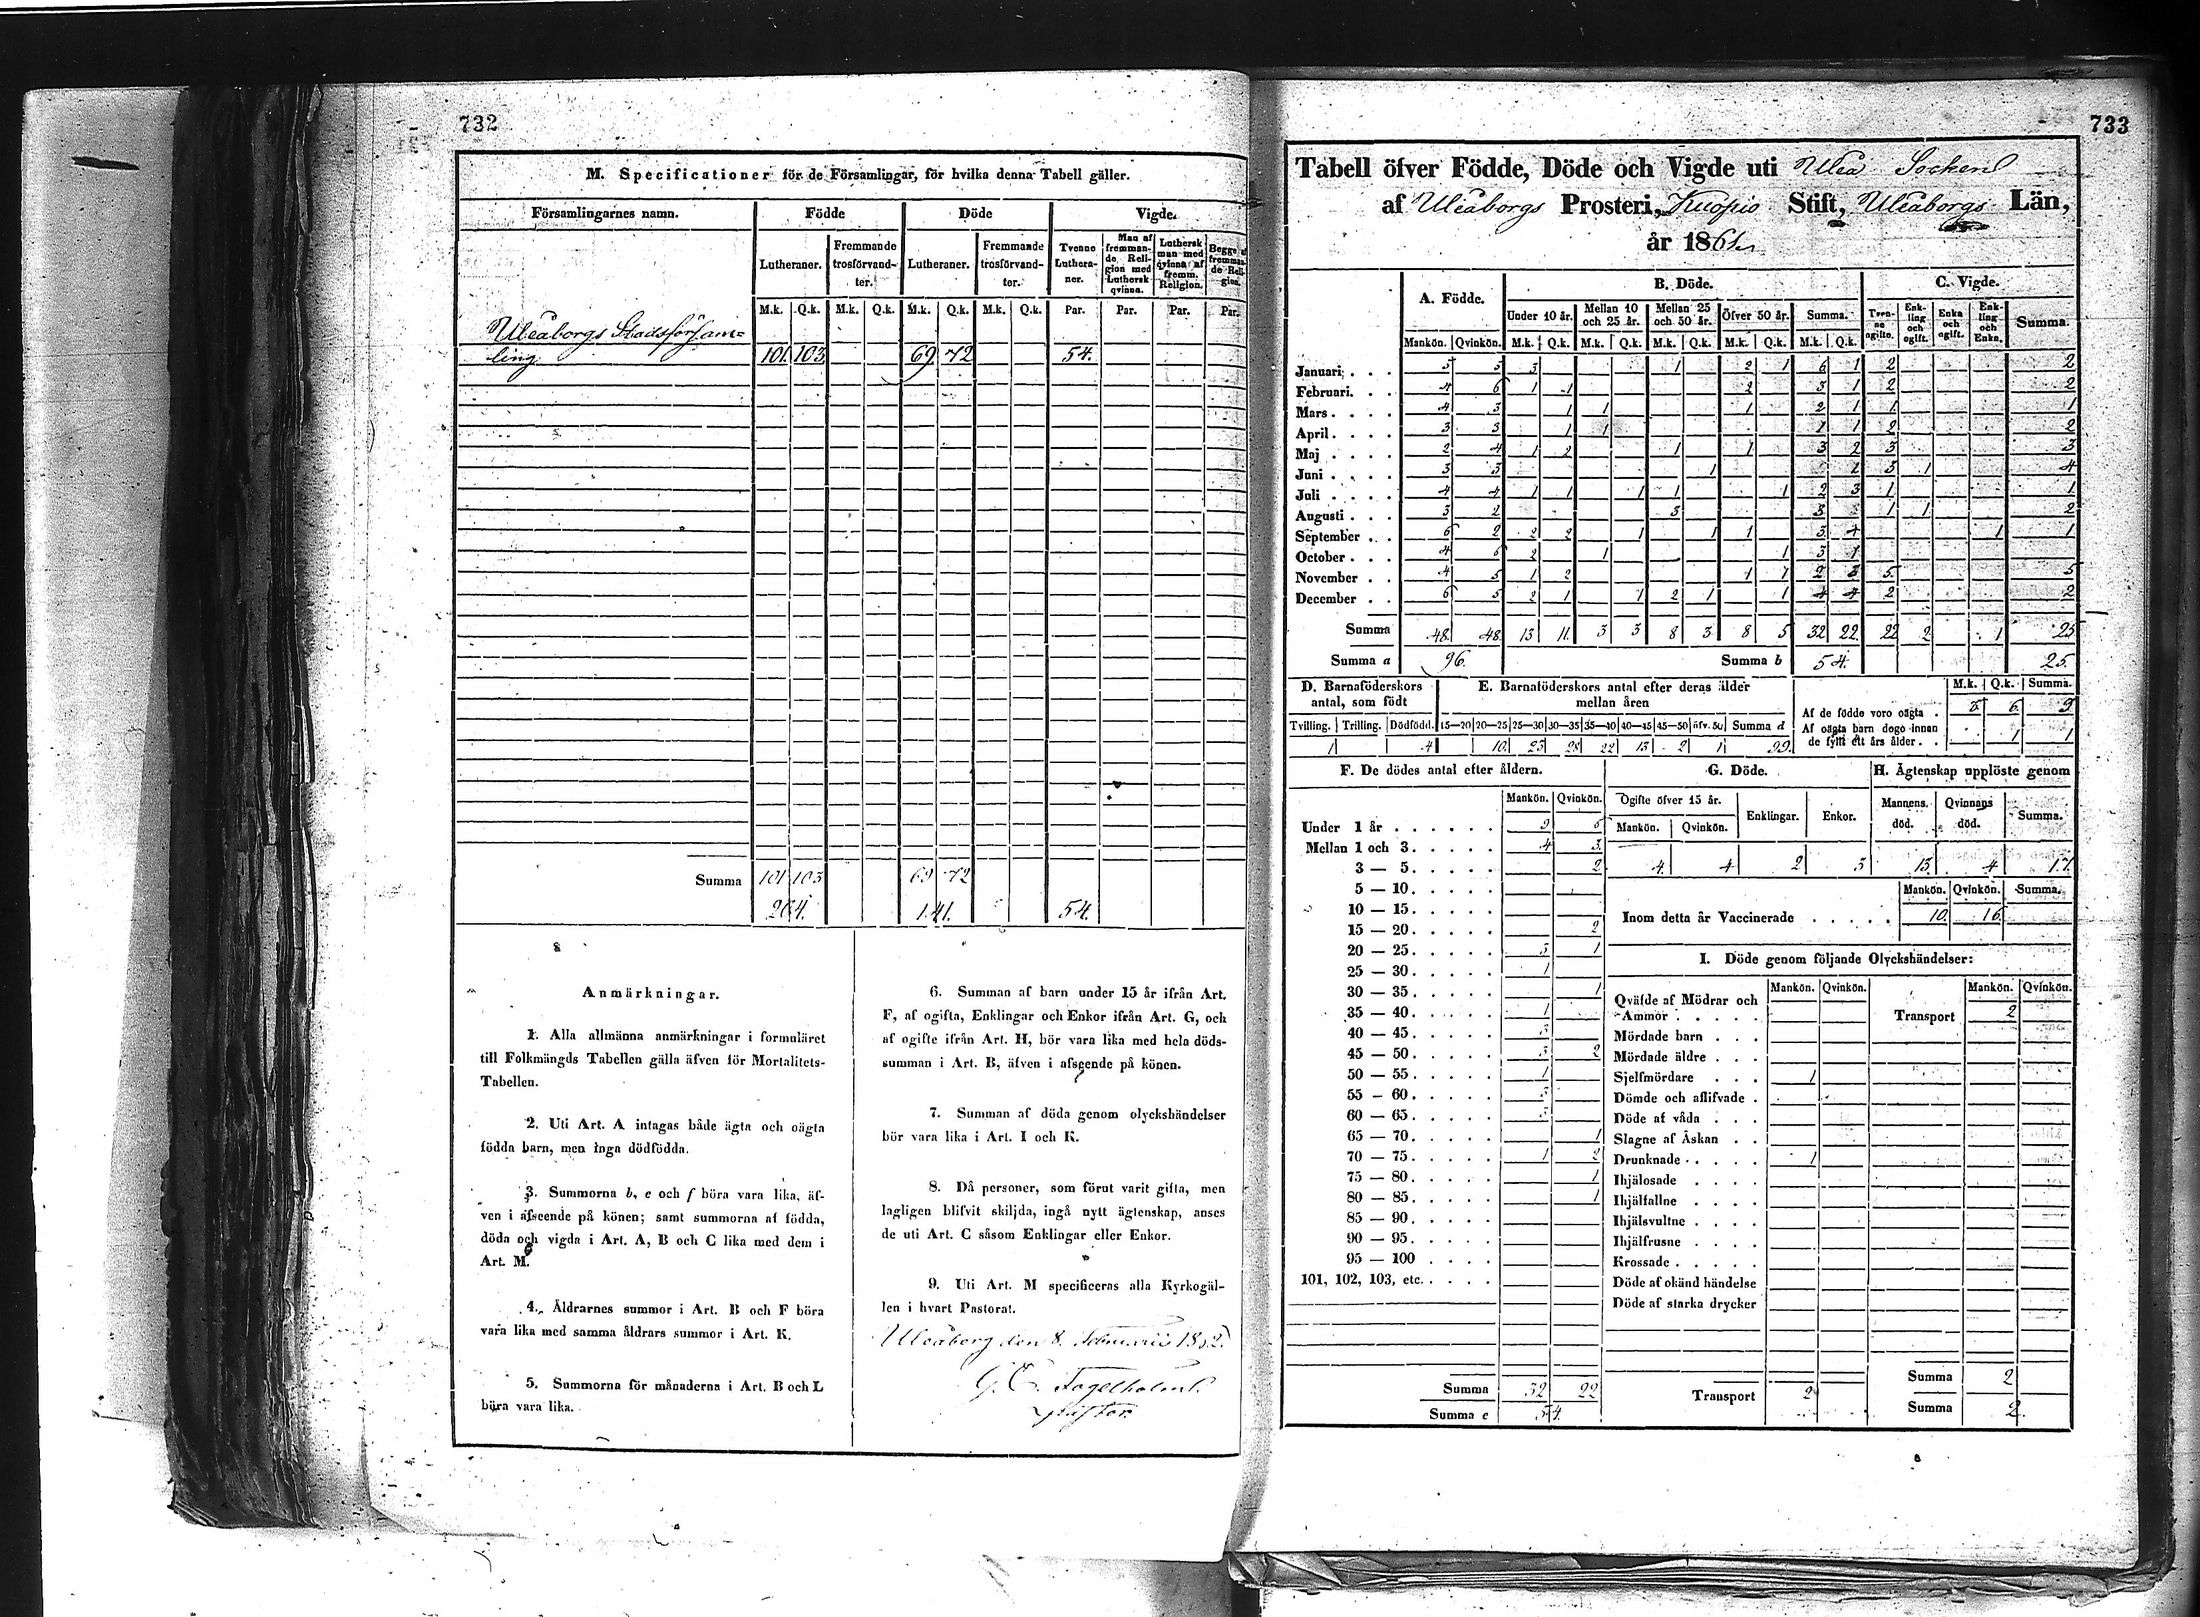 732
M. Specificationer för de Församlingar, för hvilka denna Tabell gäller.
Församlingarnes namn. Födde Döde Vigde.
Lutheraner. Fremmande trosförvandter. Lutheraner. Fremmande trosförvandter. Tvenne Lutheraner. Man af fremmande Religion med Luthersk qvinna. Luthersk man med qvinna af fremm. Religion. Begge af fremmande Religion.
M.k. Q.k. M.k. Q.k. M.k. Q.k. M.k. Q.k. Par. Par. Par. Par.
Uleåborgs Stadsförsam=
ling 101 103 69 72 54.
Summa 101 103 69 72
204. 141. 54.
Anmärkningar.
1. Alla allmänna anmärkningar i formuläret
till Folkmängds Tabellen gälla äfven för Mortalitets-
Tabellen.
2. Uti Art. A intagas både ägta och oägta
födda barn, men inga dödfödda.
3. Summorna b, e och f böra vara lika, äf-
ven i afseende på könen; samt summorna af födda,
döda och vigda i Art. A, B och C lika med dem i
Art. M.
4. Åldrarnes summor i Art. B och F böra
vara lika med samma åldrars summor i Art. K.
5. Summorna för månaderna i Art. B och L
böra vara lika.
6. Summan af barn under 15 år ifrån Art.
F, af ogifta, Enklingar och Enkor ifrån Art. G, och
af ogifte ifrån Art. H, bör vara lika med hela döds-
summan i Art. B, äfven i afseende på könen.
7. Summan af döda genom olyckshändelser
bör vara lika i Art. I och K.
8. Då personer, som förut varit gifta, men
lagligen blifvit skiljda, ingå nytt ägtenskap, anses
de uti Art. C såsom Enklingar eller Enkor.
9. Uti Art. M specificeras alla Kyrkogäl-
len i hvart Pastorat.
Uleåborg den 8. Februarii 1862.
Fogelholm.
733
Tabell öfver Födde, Döde och Vigde uti Uleå Socken
af Uleåborgs Prosteri, Kuopio Stift, Uleåborgs Län,
år 1861
A. Födde. B. Döde. C. Vigde.
Under 10 år. Mellan 10 och 25 år. Mellan 25 och 50 år. Öfver 50 år. Summa. Tvenne ogifte. Enkling och ogift. Enka och ogift. Enkling och Enka. Summa.
Mankön. Qvinkön. M.k. Q.k. M.k. Q.k. M.k. Q.k. M.k. Q.k. M.k. Q.k.
Januari 5 5 3 1 2 1 6 1 2 2
Februari 4 6 1 1 2 3 1 2 2
Mars 4 3 1 1 1 2 1 1 1
April 3 3 1 1 1 1 2 2
Maj 2 4 1 2 1 1 3 2 3 3
Juni 3 3 1 3 1 4
Juli 4 4 1 1 1 1 1 2 3 1 1
Augusti 3 2 3 3 1 1 2
September 6 2 2 2 1 1 1 3 4 1 1
October 4 6 2 1 1 3 1
November 4 5 1 2 1 1 2 3 5 5
December 6 5 2 1 1 2 1 1 4 4 2 2
Summa 48 48 13 11 3 3 8 3 8 5 32 22 22 2 1 25
Summa a 96. Summa b 54. 25.
D. Barnaföderskors antal, som födt E. Barnaföderskors antal efter deras ålder mellan åren M.k. Q.k. Summa.
Tvilling. Trilling. Dödfödd. 15—20 20—25 25—30 30—35 35—40 40—45 45—50 öfv. 50 Summa d
1 4 10 23 28 22 13 2 1 99.
Af de födde voro oägta 3 6 9
Af oägta barn dogo innan
de fyllt ett års ålder 1 1
F. De dödes antal efter åldern. G. Döde. H. Ägtenskap upplöste genom
Mankön. Qvinkön. Ogifte öfver 15 år. Enklingar. Enkor. Mannens död. Qvinnans död. Summa.
Mankön. Qvinkön.
4 4 2 3 13 4 17
Mankön. Qvinkön. Summa.
Inom detta år Vaccinerade 10 16
Under 1 år 9 6
Mellan 1 och 3 4 3
3 — 5 2
5 — 10
10 — 15
15 — 20 2
20 — 25 3 1
25 — 30 1
30 — 35 1
35 — 40 1
40 — 45 3
45 — 50 3 2
50 — 55 1
55 — 60 3
60 — 65 3
65 — 70 1
70 — 75 1 2
75 — 80 1
80 — 85 1
85 — 90
90 — 95
95 — 100
101, 102, 103, etc.
Summa 32 22
Summa e 54.
I. Döde genom följande Olyckshändelser:
Mankön. Qvinkön. Mankön. Qvinkön.
Qväfde af Mödrar och
Ammor Transport 2
Mördade barn
Mördade äldre
Sjelfmördare 1
Dömde och aflifvade
Döde af våda
Slagne af Åskan
Drunknade 1
Ihjälosade
Ihjälfallne
Ihjälsvultne
Ihjälfrusne
Krossade
Döde af okänd händelse
Döde af starka drycker
Summa 2
Transport 2
Summa 2.